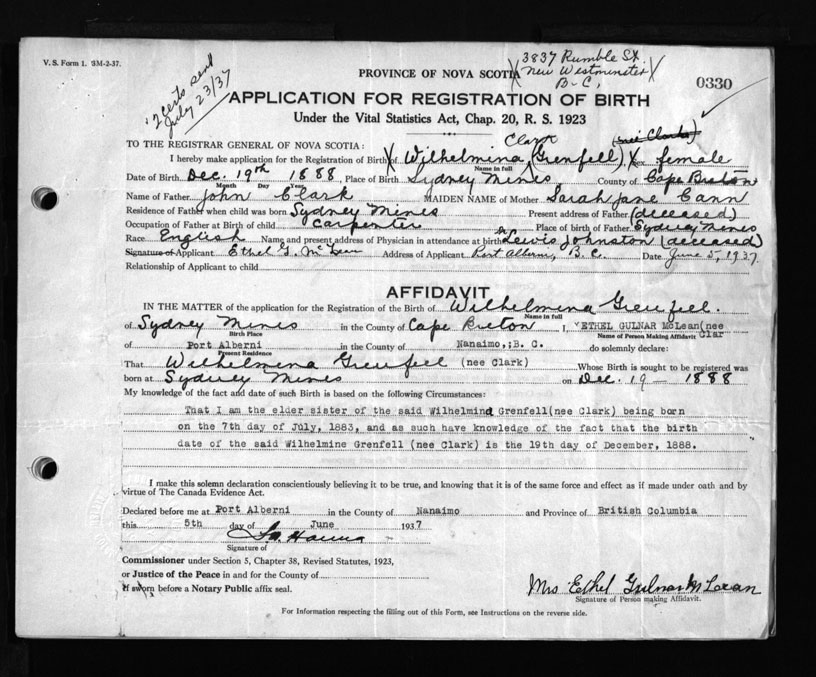 V. S. Form 1. 3M-2-37.
2 certs sent
July 23/37
3837 Rumble St.
New Westminster
B-C,
PROVINCE OF NOVA SCOTIA
0330
APPLICATION FOR REGISTRATION OF BIRTH
Under the Vital Statistics Act, Chap. 20, R. S. 1923
TO THE REGISTRAR GENERAL OF NOVA SCOTIA:
Clark
I hereby make application for the Registration of Birth of Wilhelmina (Grenfell), Sex female
Name in full
Date of Birth Dec. 19th 1888 Place of Birth Sydney Mines County of Cape Breton
Month Day
Name of Father John Clark MAIDEN NAME of Mother Sarah Jane Cann
Residence of Father when child was born Sydney Mines Present address of Father (deceased)
Occupation of Father at Birth of child Carpenter Place of birth of Father Sydney Mines
Race English Name and present address of Physician in attendance at birth Dr Lewis Johnston (deceased)
Signature of Applicant Ethel G. McLean Address of Applicant Port Alberni, B.C. Date June 5, 1937
Relationship of Applicant to child
AFFIDAVIT
IN THE MATTER of the application for the Registration of the Birth of Wilhelmina Grenfell.
Name in full
of Sydney Mines in the County of Cape Breton I, ETHEL GULNAR McLean(nee
Birth Place Name of Person Making Affidavit Clar
of Port Alberni in the County of Nanaimo,;B. C. do solemnly declare:
Present Residence
That Wilhelmina Grenfell (nee Clark) Whose Birth is sought to be registered was
born at Sydney Mines on Dec. 19 - 1888
My knowledge of the fact and date of such Birth is based on the following Circumstances:
That I am the elder sister of the said Wilhelmina Grenfell(nee Clark) being born
on the 7th day of July, 1883, and as such have knowledge of the fact that the birth
date of the said Wilhelmine Grenfell (nee Clark) is the 19th day of December, 1888.
I make this solemn declaration conscientiously believing it to be true, and knowing that it is of the same force and effect as if made under oath and by
virtue of The Canada Evidence Act.
Declared before me at Port Alberni in the County of Nanaimo and Province of British Columbia
this 5th day of June 1937
Signature of
Commissioner under Section 5, Chapter 38, Revised Statutes, 1923,
or Justice of the Peace in and for the County of
If sworn before a Notary Public affix seal.
Mrs Ethel Gulnar McLean
Signature of Person making Affidavit.
For Information respecting the filling out of this Form, see Instructions on the reverse side.